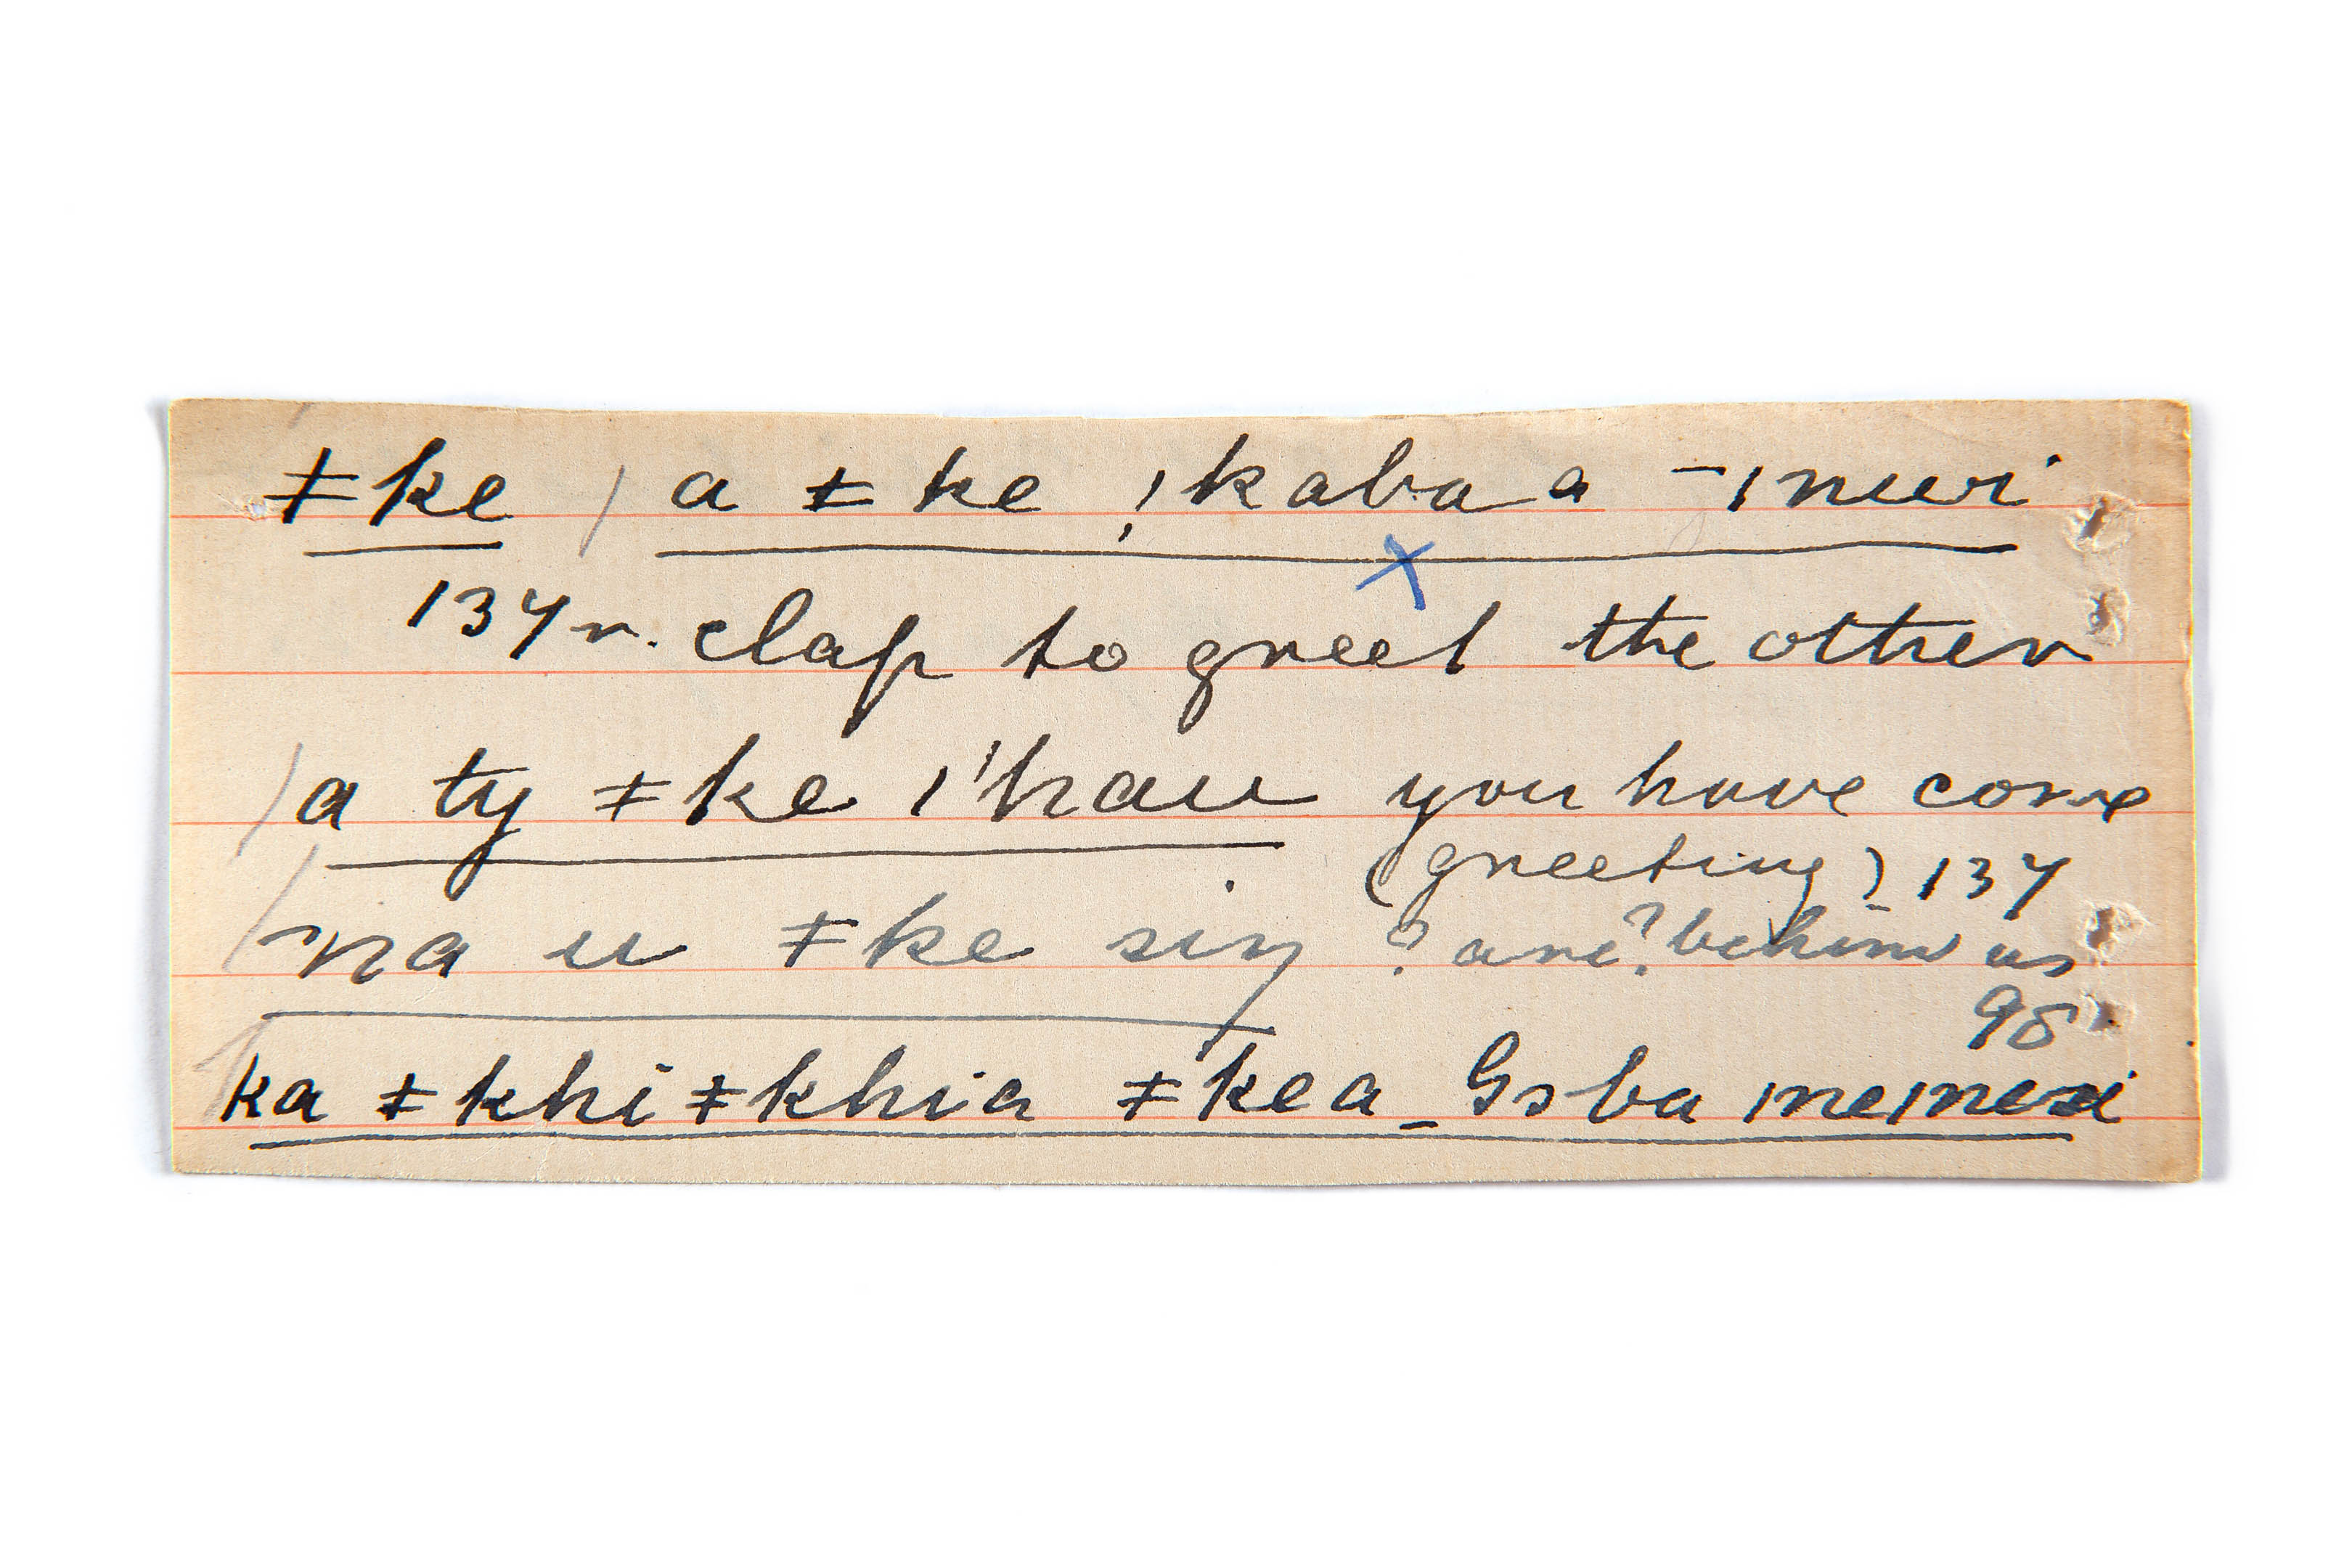 ǂke / a ǂke !kabaa a ‾ǀnuvi
137 r. clap to greet the other
/ a ty ǂke ǀ'hau you have come
(greeting) 137
/ 'na u ǂke siŋ ? are? behind us
98
ka ǂkhiǂkhia ǂkea _ Gsba ǀneǀne